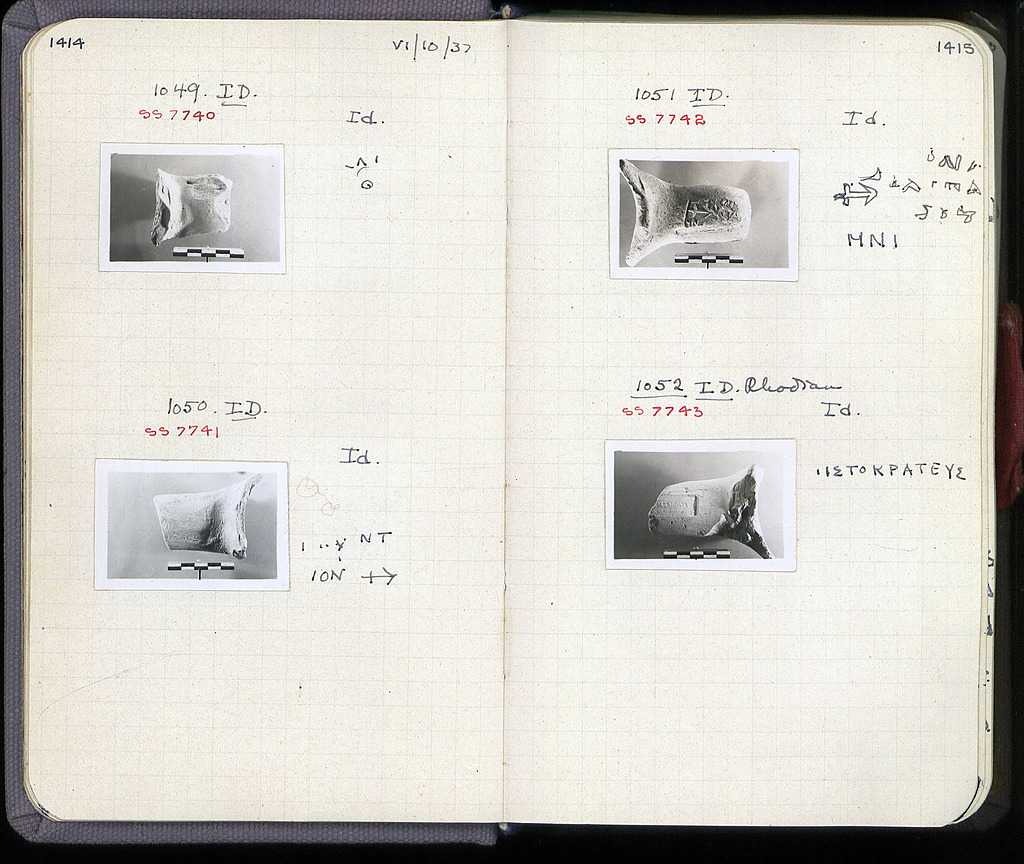 1414
VI/10/37
1049. ID.
SS 7740
Id.
1050. ID.
SS 7741
Id.
NT
ION
1415
1051 ID.
SS 7742
Id.
ΗΝΙ
1052 ID. Rhodian
SS 7743
Id.
ΙΙΣΤΟΚΡΑΤΕΥΣ